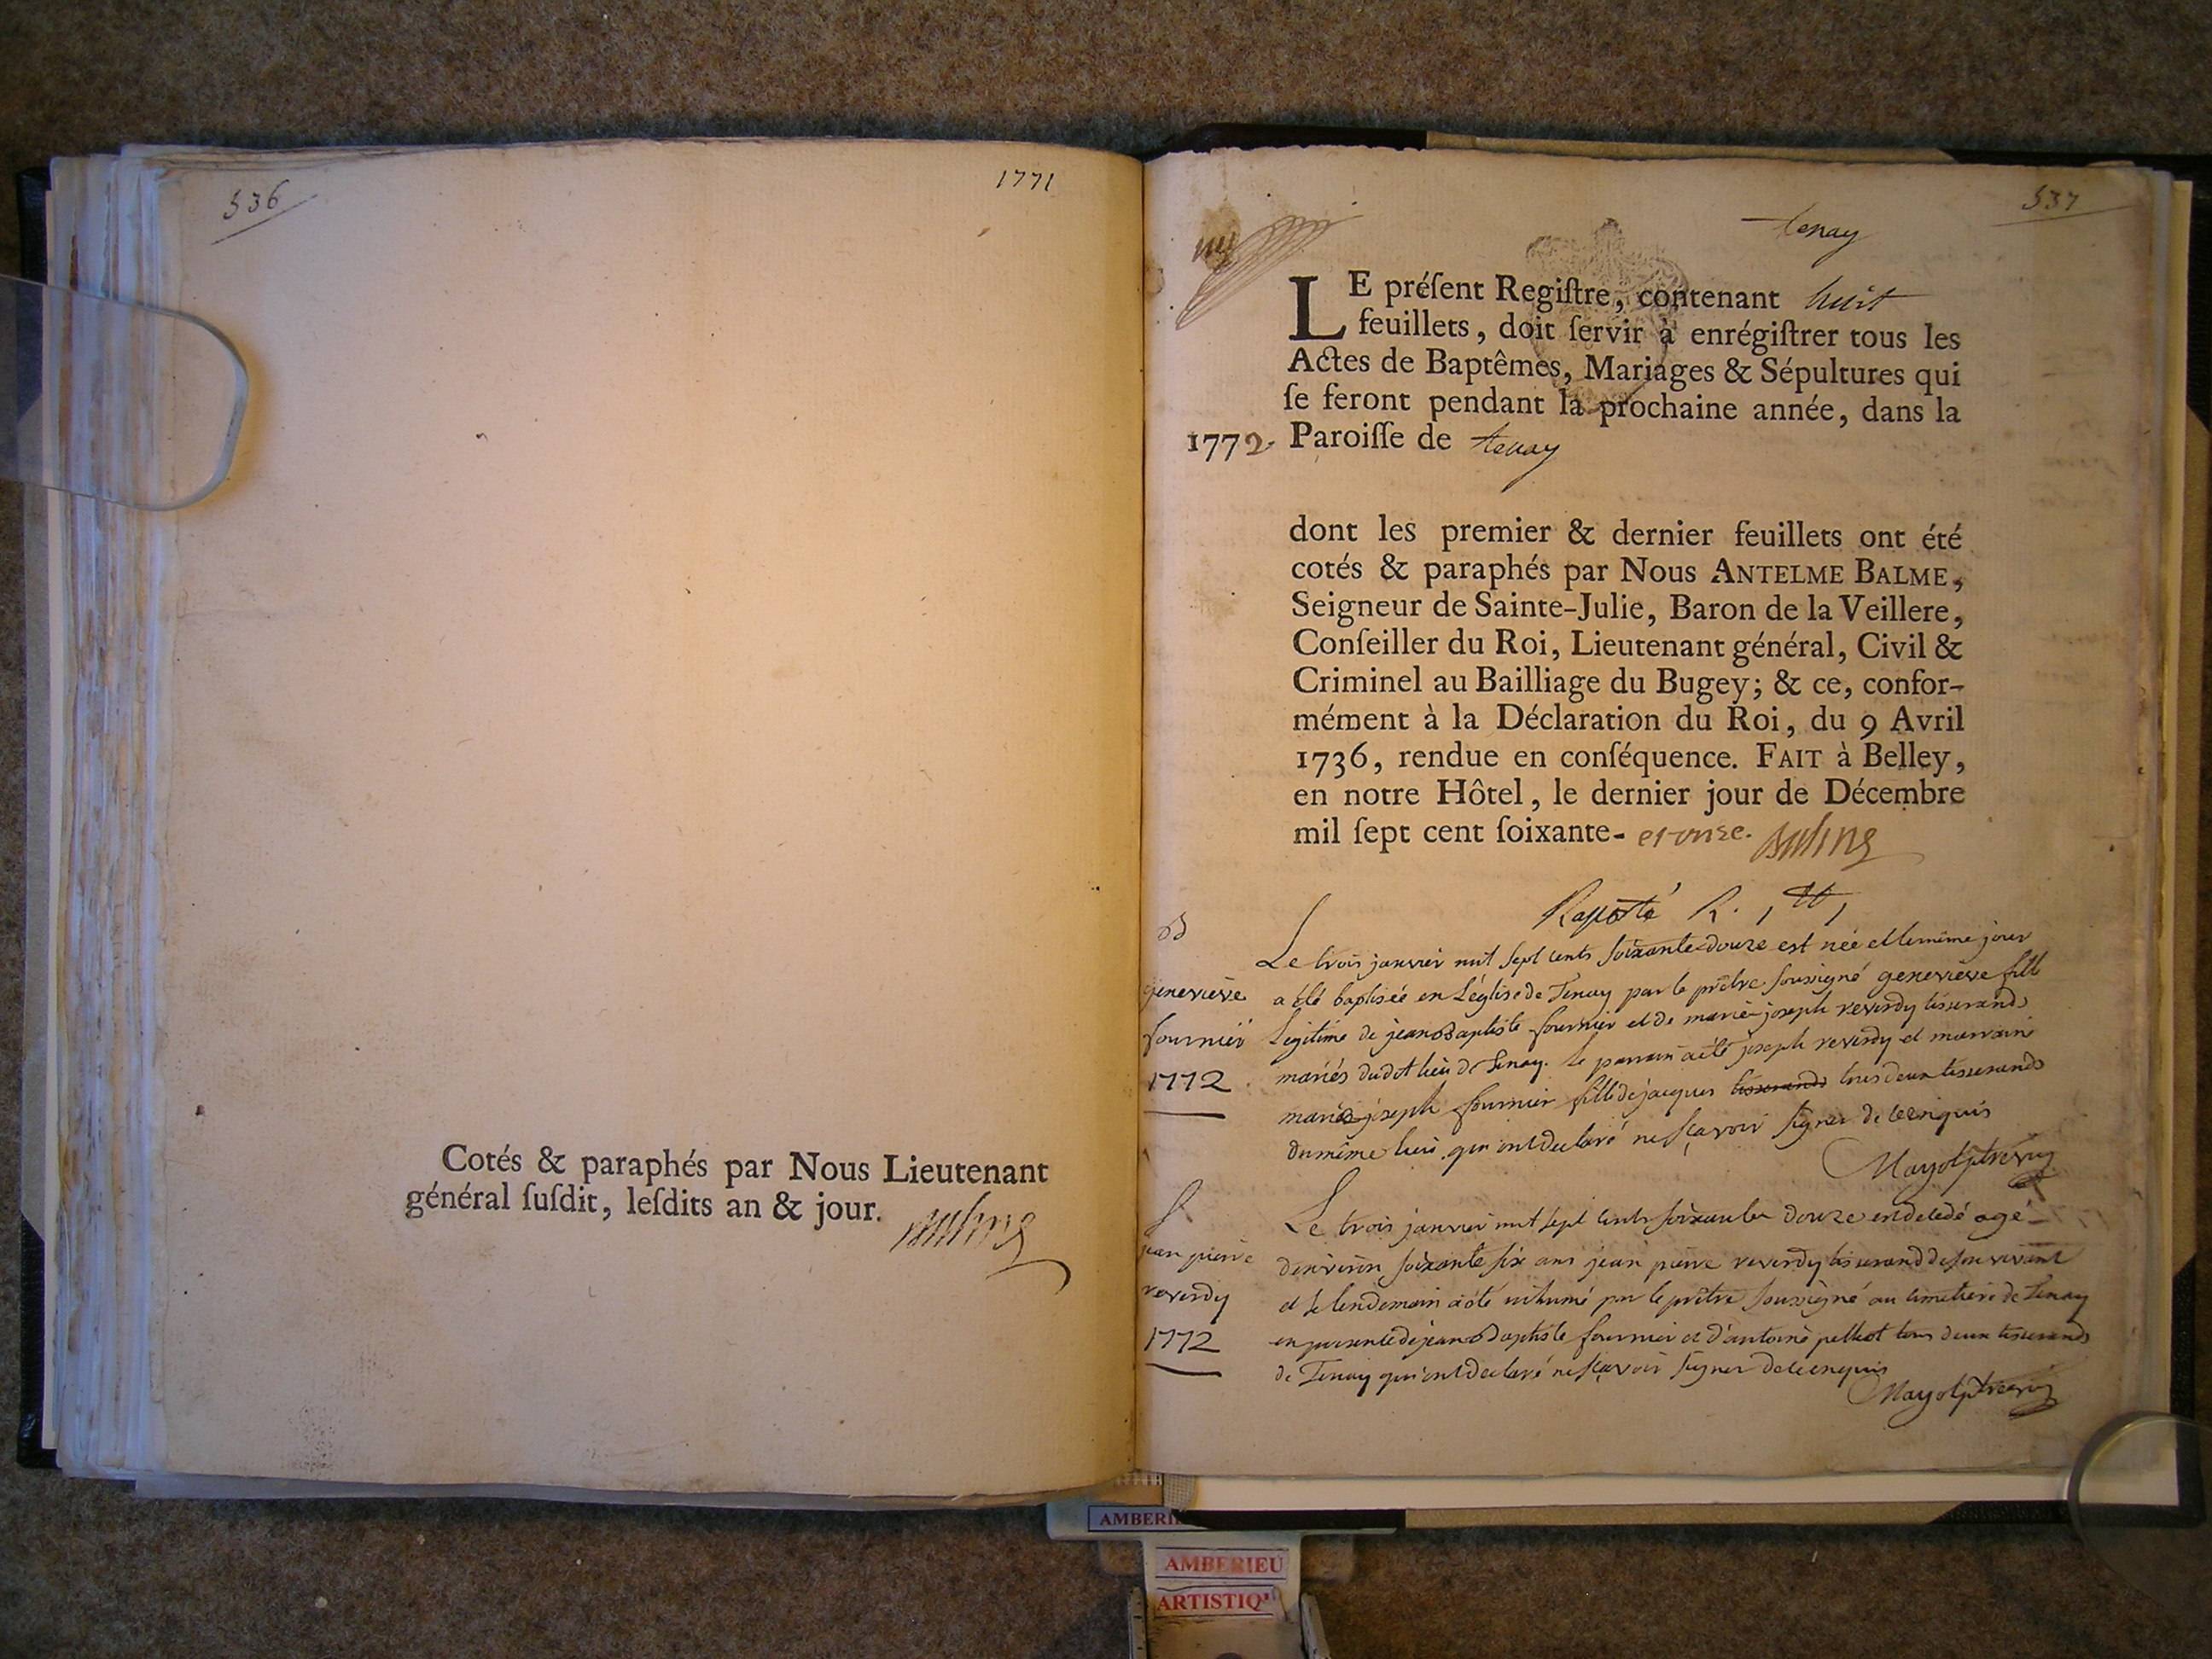 536
1771
Cotés & paraphés par Nous Lieutenant
général ſuſdit, leſdits an & jour.
537
tenay
LE préſent Regiſtre, contenant huit
feuillets, doit ſervir à enrégiſtrer tous les
Actes de Baptêmes, Mariages & Sépultures qui
ſe feront pendant la prochaine année, dans la
1772 Paroiſſe de tenay
dont les premier & dernier feuillets ont été
cotés & paraphés par Nous ANTELME BALME,
Seigneur de Sainte-Julie, Baron de la Veillere,
Conſeiller du Roi, Lieutenant général, Civil &
Criminel au Bailliage du Bugey; & ce, confor-
mément à la Déclaration du Roi, du 9 Avril
1736, rendue en conſéquence. FAIT à Belley,
en notre Hôtel, le dernier jour de Décembre
mil ſept cent ſoixante- et onze. Balme
B
genevieve
fournier
1772
Le trois janvier mil sept cents soixante douze est née et le même jour
a été baptisée en L'église de Tenay par le prêtre soussigné genevieve fille
Legitime de jean Baptiste fournier et de marie joseph reverdy tisserands
mariés dudit lieu de Tenay. le parrain a été joseph reverdy et marraine
marie joseph fournier fille de jacques tisserands tous deux tisserands
du même lieu qui ont declaré ne sçavoir signer de ce enquis
S
jean pierre
reverdy
1772
Le trois janvier mil sept cents soixante douze en decedé agé
d'environ soixante six ans jean pierre reverdy tisserand de son vivant
et le lendemain a été inhumé par le prêtre soussigné au cimetiere de Tenay
en presence de jean Baptiste fournier et d'antoine tous deux tisserands
de Tenay qui ont declaré ne sçavoir signer de ce enquis
AMBERIEU
ARTISTIQ